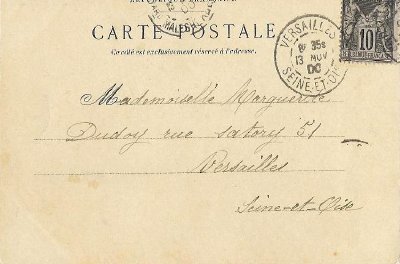 CARTE POSTALE
Ce côté est exclusivement réservé à l'adresse.
VERSAILLES
8E 35S
13 NOV
00
SEINE-ET-OISE
10
Mademoiselle Marguerite
Dudoy rue Satory 51
Versailles
Seine-et-Oise